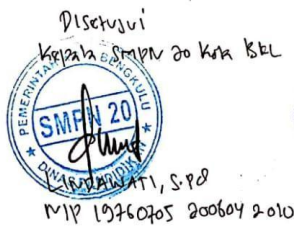 Disetujui
Kepala SMPN 20 Kota BKL
PEMERINTAH BENGKULU
SMPN 20
DINAS PENDIDIKAN
LINDAWATI, S.Pd
NIP 19760705 200604 2 010